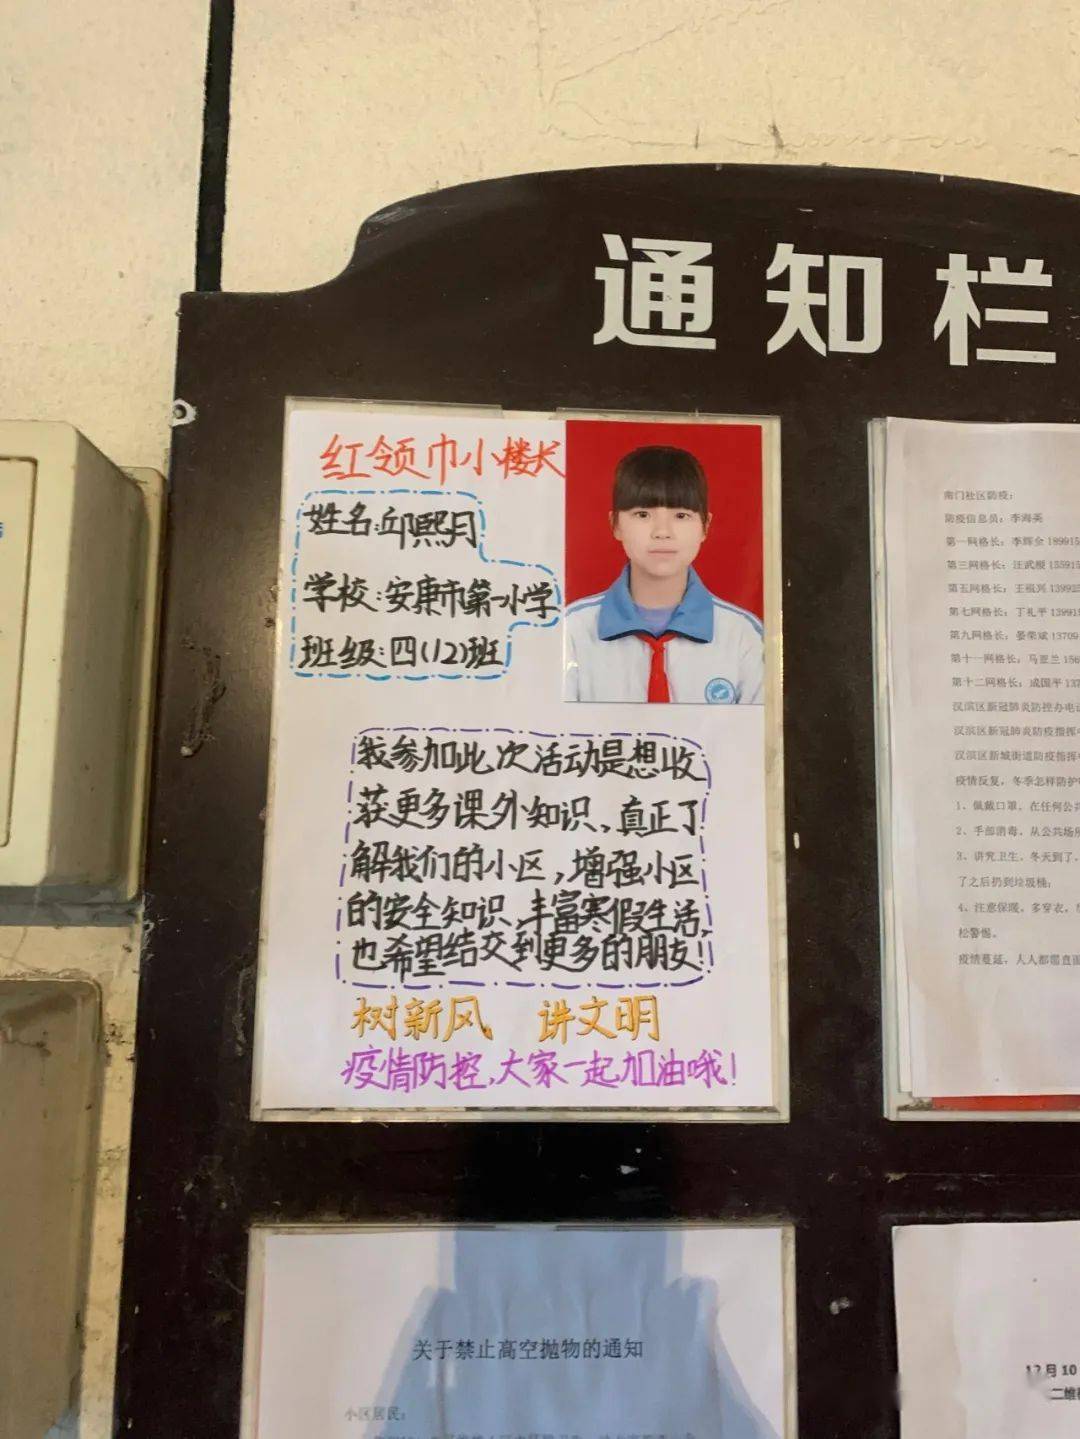 通知栏
红领巾小楼长
姓名:邱熙月
学校:安康市第一小学
班级:四(12)班
我参加此次活动是想收
获更多课外知识、真正了
解我们的小区,增强小区
的安全知识、丰富寒假生活,
也希望结交到更多的朋友!
树新风 讲文明
疫情防控,大家一起加油哦!
南门社区防疫:
防疫信息员:李海英
第一网格长:李辉全 189915
第三网格长:汪武顺 155915
第五网格长:王祖兴 139925
第七网格长:丁礼平 139915
第九网格长:晏荣斌 13709
第十一网格长:马亚兰 156
第十二网格长:成国平 137
汉滨区新冠肺炎防控办电
汉滨区新冠肺炎防疫指挥
汉滨区新城街道防疫指挥
疫情反复,冬季怎样防护
1、佩戴口罩,在任何公共
2、手部消毒,从公共场所
3、讲究卫生,冬天到了,
了之后扔到垃圾桶;
4、注意保暖,多穿衣,
松警惕。
疫情蔓延,人人都需直面
关于禁止高空抛物的通知
小区居民:
12月10
二维